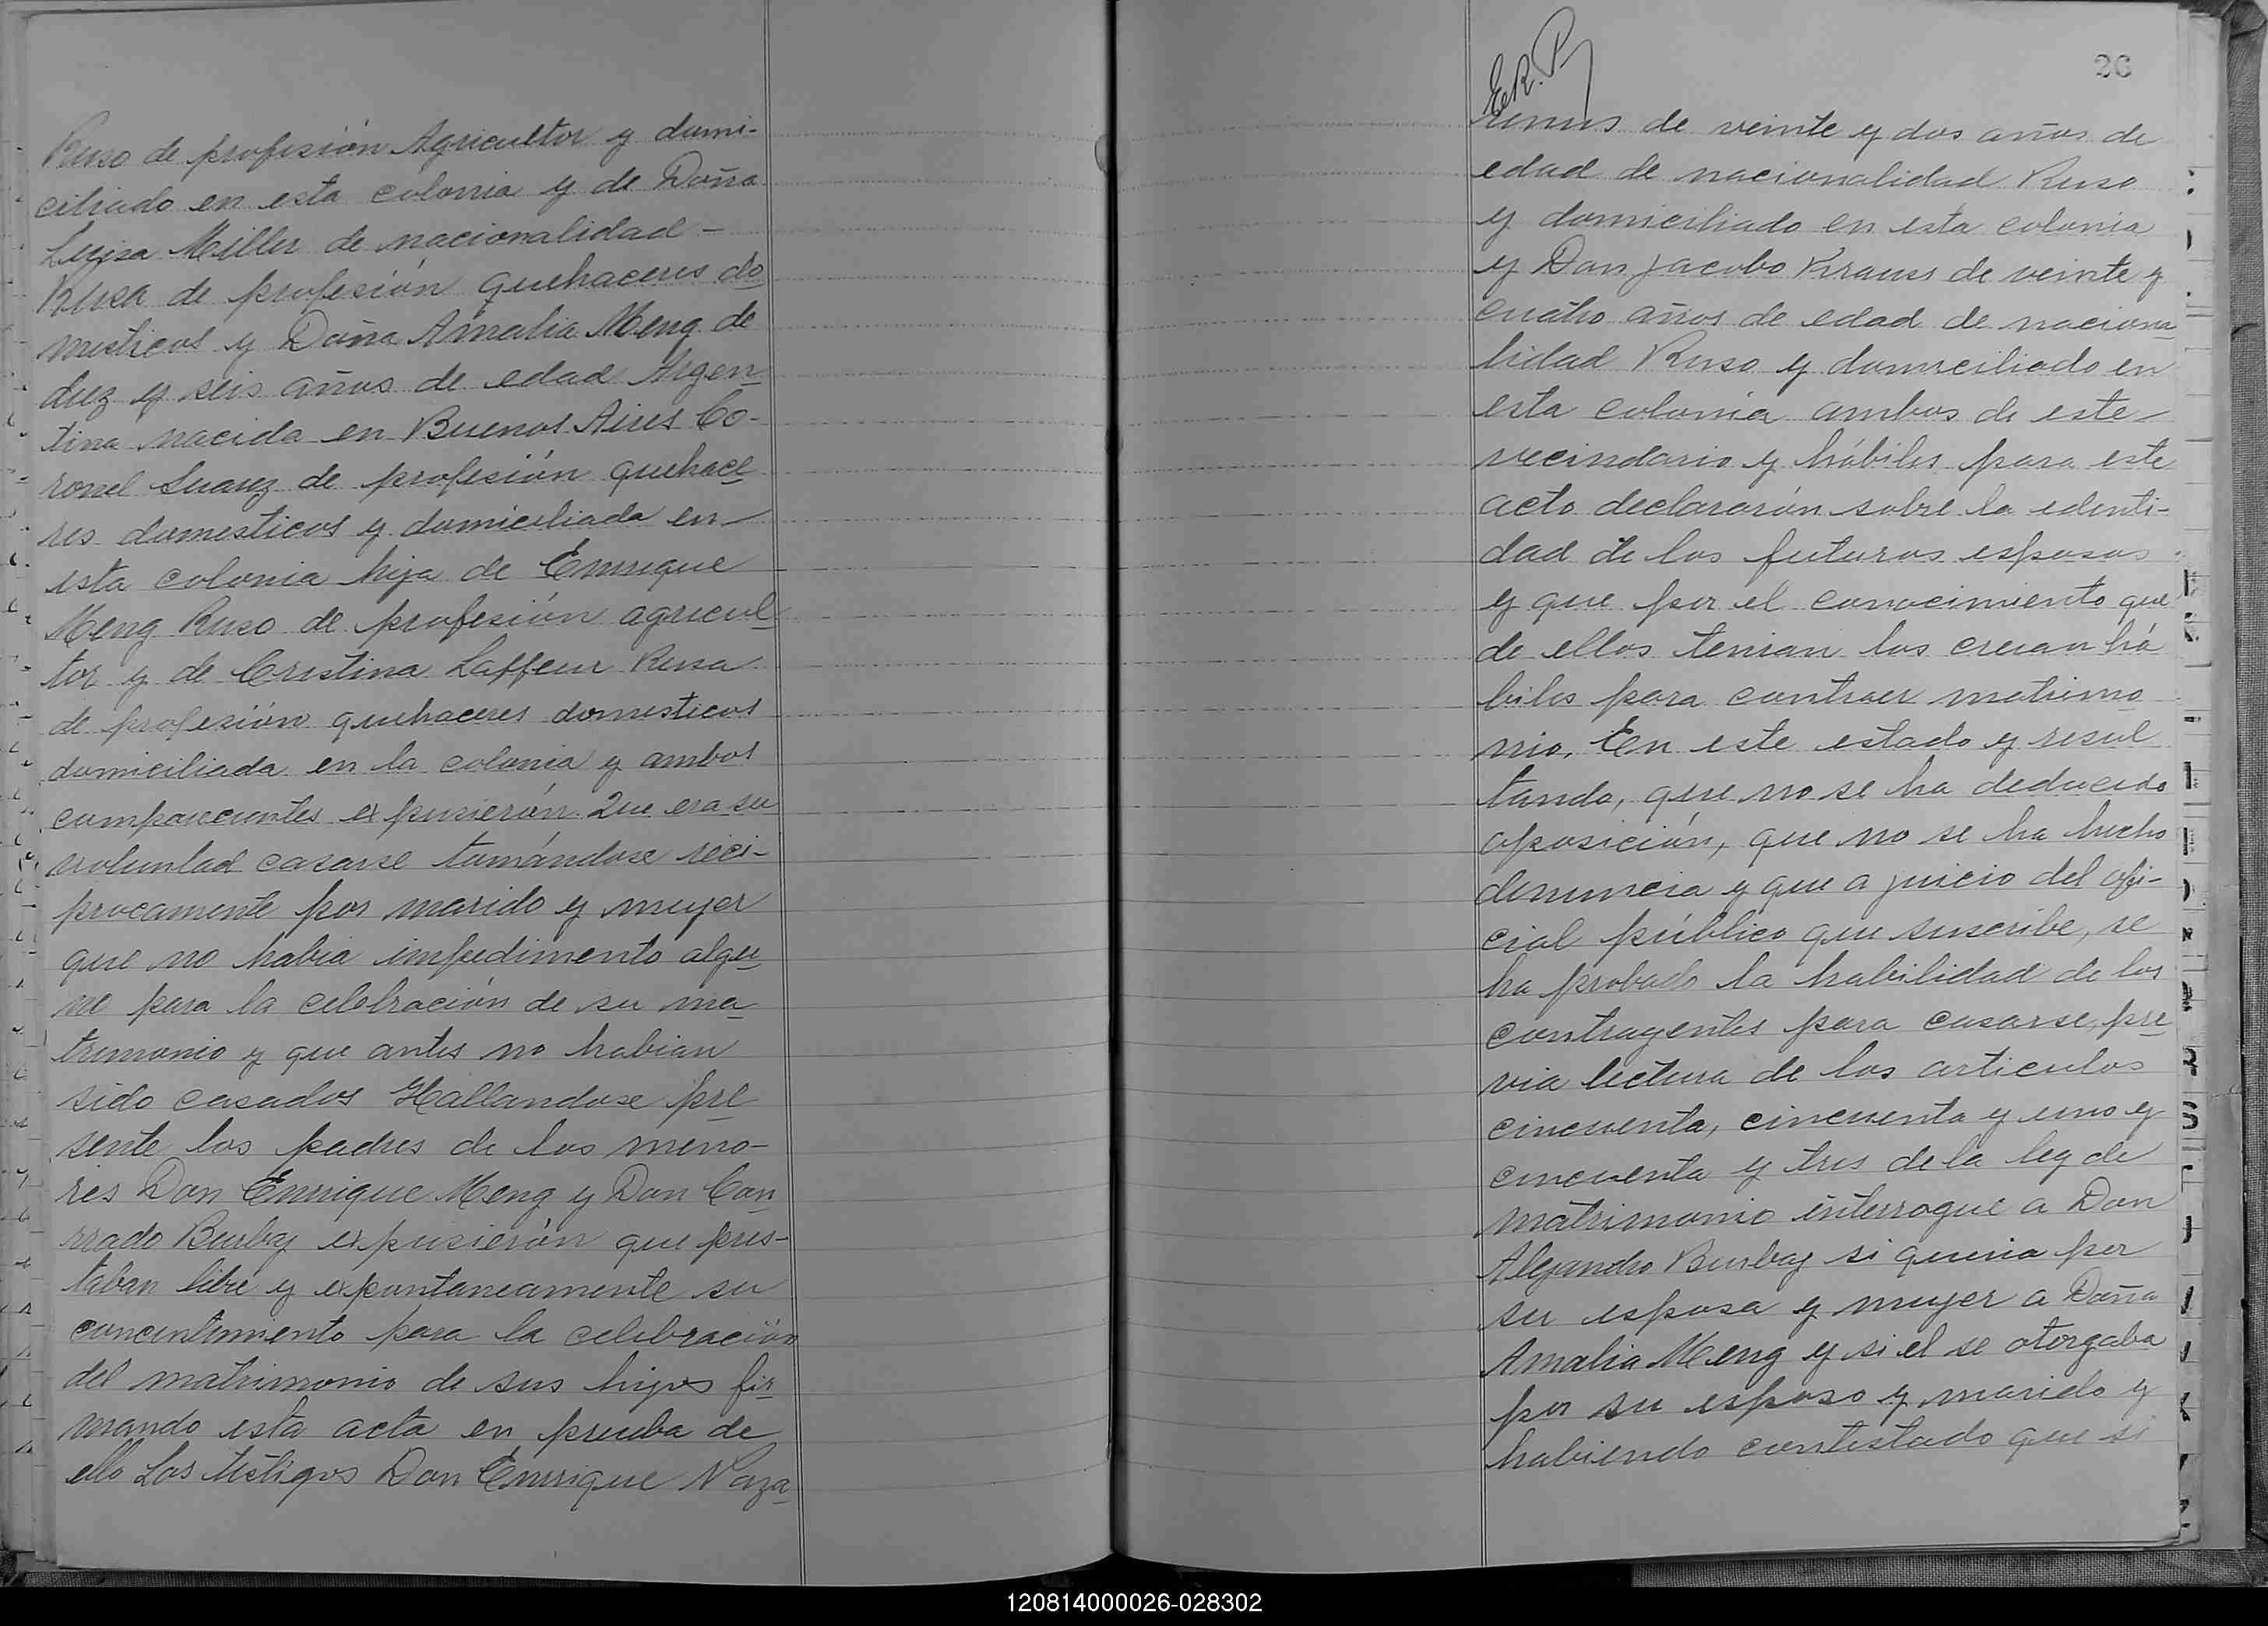 Ruso de profesión Agricultor y domi-
ciliado en esta colonia y de Doña
Luisa Miller de nacionalidad -
Rusa de profesión quehaceres do
mesticos y Doña Amalia Meng de
diez y seis años de edad Argen
tina nacida en Buenos Aires Co-
ronel Suarez de profesión quehace
res domesticos y domiciliada en
esta colonia hija de Enrique
Meng Ruso de profesión agricul
tor y de Cristina Laffeur Rusa
de profesión quehaceres domesticos
domiciliada en la colonia y ambos
comparecientes expusierón Que era su
voluntad casarse tomándose reci-
procamente por marido y mujer
que no habia impedimento algu
no para la celebración de su ma
trimonio y que antes no habian
sido casados Hallandose pre
sente los padres de los meno-
res Don Enrique Meng y Don Con
rrado Burbaj expusierón que pres-
taban libre y expontaneamente su
concentimiento para la celebración
del matrimonio de sus hijos fir
mando esta acta en prueba de
ello Los testigos Don Enrique Naza
26
E.R.P.
renus de veinte y dos años de
edad de nacionalidad Ruso
y domiciliado en esta colonia
y Don Jacobo Krauss de veinte y
cuatro años de edad de naciona
lidad Ruso y domiciliado en
esta colonia ambos de este
vecindario y hábiles para este
acto declararón sobre la identi-
dad de los futuros esposos
y que por el conocimiento que
de ellos tenian los creian há
biles para contraer matrimo
nio. En este estado y resul
tando, que no se ha deducido
oposición, que no se ha hecho
denuncia y que a juicio del ofi-
cial público que suscribe, se
ha probado la habilidad de los
contrayentes para casarse, pre
via lectura de los articulos
cincuenta, cincuenta y uno y
cincuenta y tres de la ley de
matrimonio interrogue a Don
Alejandro Burbaj si queria por
su esposa y mujer a Doña
Amalia Meng y si el se otorgaba
por su esposo y marido y
habiendo contestado que si
120814000026-028302